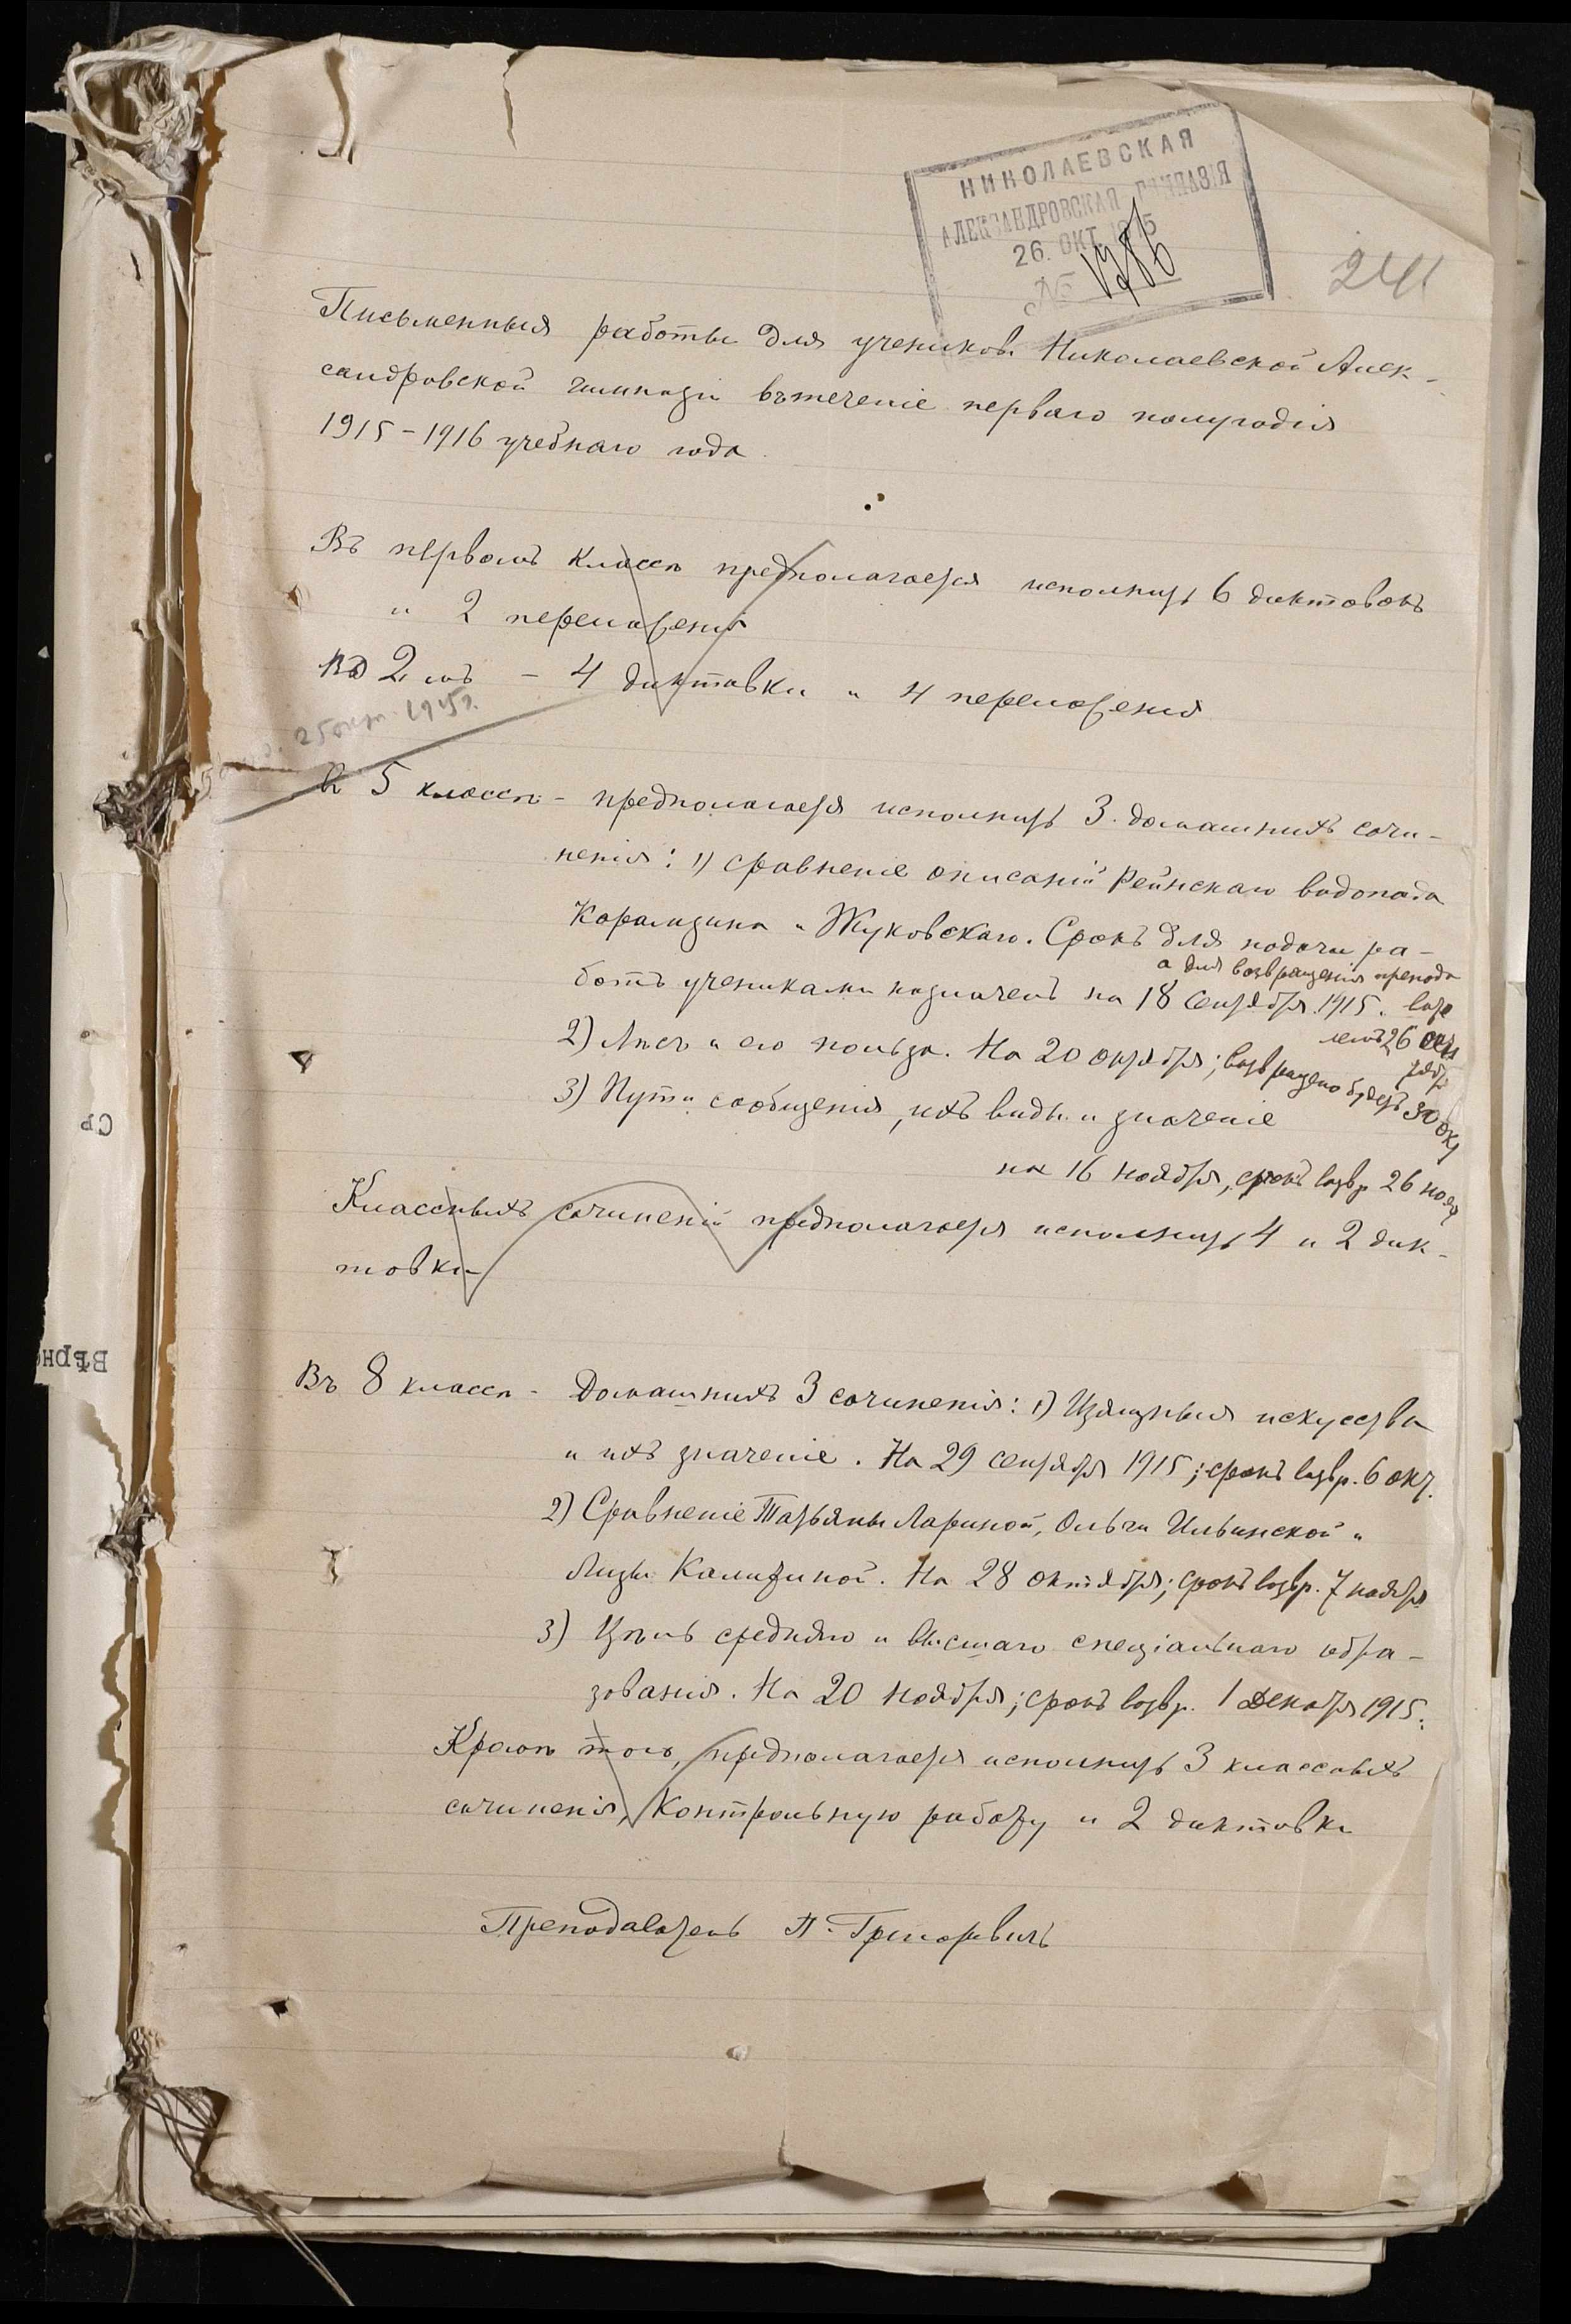 НИКОЛАЕВСКАЯ
АЛЕКСАНДРОВСКАЯ ГИМНАЗІЯ
26. ОКТ. 1915
№ 1786
241
Письменныя работы для учениковъ Николаевской Алек-
сандровской гимназіи въ теченіе перваго полугодія
1915-1916 учебнаго года.
Въ первомъ классѣ предполагается исполнить 6 диктовокъ
и 2 переложенія
Въ 2мъ - 4 диктовки и 4 переложенія
25 окт. 1915г.
В 5 классѣ - предполагается исполнить 3 домашнихъ сочи-
ненія: 1) Сравненіе описаній Рейнскаго водопада
Карамзина и Жуковскаго. Срокъ для подачи ра-
а для возвращенія препода
ботъ учениками назначенъ на 18 сентября 1915. вате
лемъ 26 сен
тября
2) Лѣсъ и его польза. На 20 октября; возвращено будетъ 30 окт
3) Пути сообщенія, ихъ виды и значеніе
на 16 ноября, срокъ возвр 26 нояб
Классныхъ сочиненій предполагается исполнить 4 и 2 дик-
товки
Въ 8 классѣ - Домашнихъ 3 сочиненія: 1) Изящныя искусства
и ихъ значеніе. На 29 сентября 1915; срокъ возвр. 6 окт.
2) Сравненіе Татьяны Лариной, Ольги Ильинской и
Лизы Калитиной. На 28 октября; срокъ возвр. 7 ноября
3) Цѣль средняго и высшаго спеціальнаго обра-
зованія. На 20 ноября; срокъ возвр. 1 декабря 1915.
Кромѣ того, предполагается исполнить 3 классныхъ
сочиненія, контрольную работу и 2 диктовки
Преподаватель П. Григоревичъ
Ср
Вѣрно